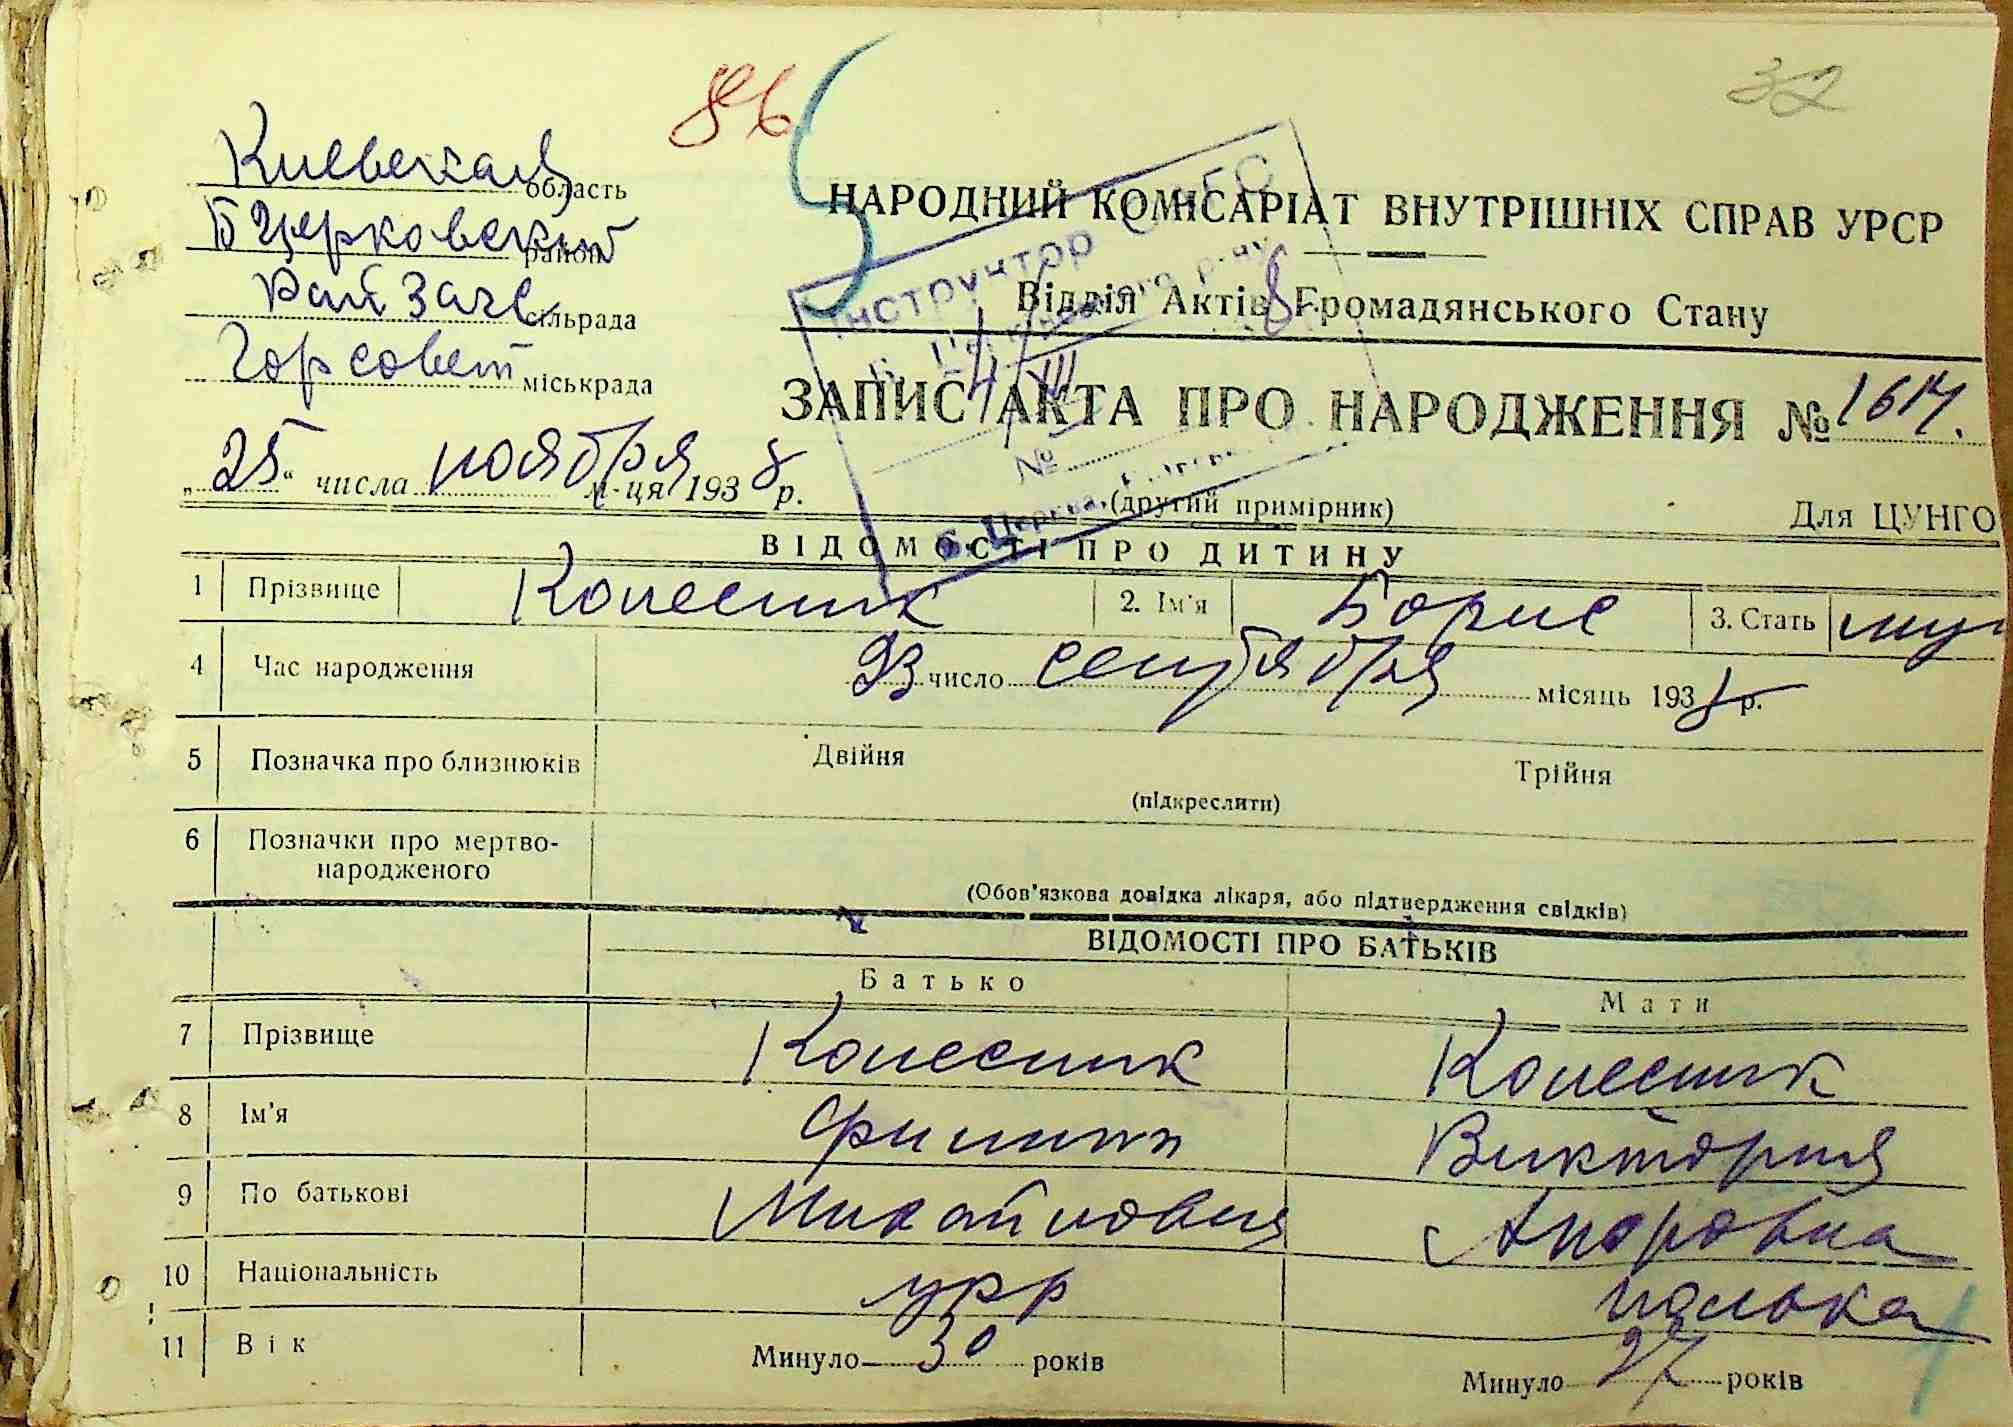 86
32
Киевская область
Б Церковский район
Рай Загс сільрада
Горсовет міськрада
НАРОДНИЙ КОМІСАРІАТ ВНУТРІШНІХ СПРАВ УРСР
Відділ Актів Громадянського Стану
ЗАПИС АКТА ПРО НАРОДЖЕННЯ № 1617.
„25“ числа ноября м-ця 1938 р.
(другий примірник)
Для ЦУНГО
Інструктор
№
Б. Церква,
ВІДОМОСТІ ПРО ДИТИНУ
1 Прізвище Колесник 2. Ім'я Борис 3. Стать муж
4 Час народження 23 число сентября місяць 1938 р.
5 Позначка про близнюків Двійня Трійня
(підкреслити)
6 Позначки про мертво-
народженого
(Обов'язкова довідка лікаря, або підтвердження свідків)
ВІДОМОСТІ ПРО БАТЬКІВ
Батько Мати
7 Прізвище Колесник Колесник
8 Ім'я Филипп Виктория
9 По батькові Михайлович
10 Національність укр полька
11 Вік Минуло 30 років Минуло 27 років